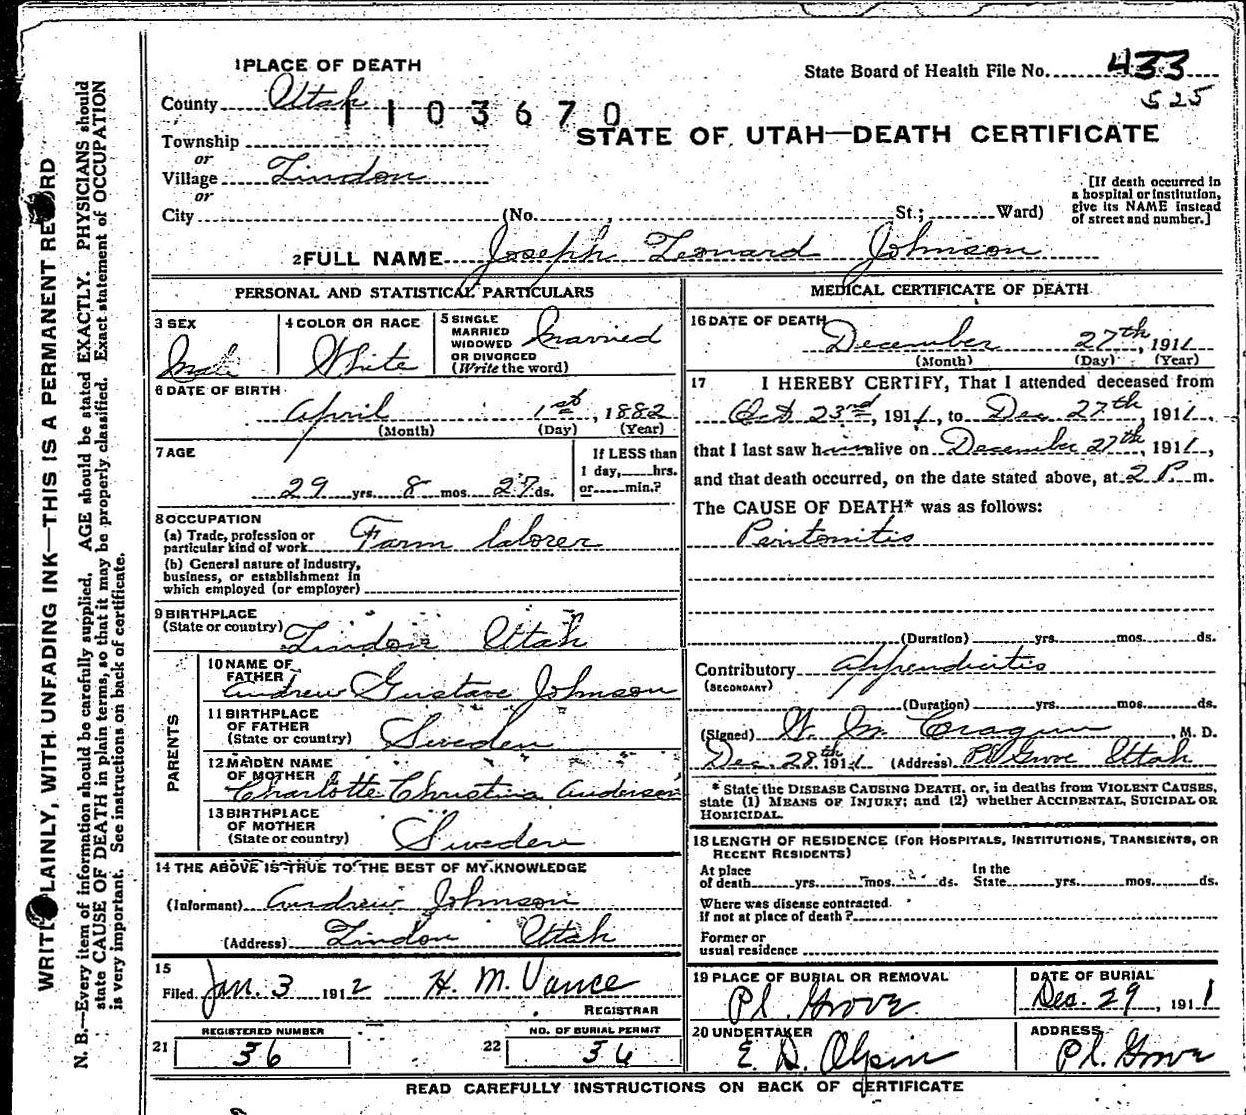 1 PLACE OF DEATH
State Board of Health File No. 433
525
County Utah
1103670
STATE OF UTAH—DEATH CERTIFICATE
Township
or
Village Lindon
or
City (No. , St.; Ward)
[If death occurred in a hospital or institution, give its NAME instead of street and number.]
2 FULL NAME Joseph Leonard Johnson
PERSONAL AND STATISTICAL PARTICULARS
3 SEX
Male
4 COLOR OR RACE
White
5 SINGLE
MARRIED
WIDOWED
OR DIVORCED
(Write the word)
Married
6 DATE OF BIRTH
April 1st, 1882
(Month) (Day) (Year)
7 AGE
29 yrs. 8 mos. 27 ds.
If LESS than
1 day, hrs.
or min.?
8 OCCUPATION
(a) Trade, profession or
particular kind of work Farm laborer
(b) General nature of industry,
business, or establishment in
which employed (or employer)
9 BIRTHPLACE
(State or country) Lindon Utah
PARENTS
10 NAME OF
FATHER
Andrew Gustave Johnson
11 BIRTHPLACE
OF FATHER
(State or country) Sweden
12 MAIDEN NAME
OF MOTHER
Charlotte Christina Anderson
13 BIRTHPLACE
OF MOTHER
(State or country) Sweden
14 THE ABOVE IS TRUE TO THE BEST OF MY KNOWLEDGE
(Informant) Andrew Johnson
(Address) Lindon Utah
15
Filed Jan. 3 1912 H. M. Vance
REGISTRAR
REGISTERED NUMBER
21 36
NO. OF BURIAL PERMIT
22 36
MEDICAL CERTIFICATE OF DEATH
16 DATE OF DEATH
December 27th, 1911
(Month) (Day) (Year)
17 I HEREBY CERTIFY, That I attended deceased from
Oct 23rd, 1911, to Dec. 27th, 1911,
that I last saw him alive on December 27th, 1911,
and that death occurred, on the date stated above, at 2 P. m.
The CAUSE OF DEATH* was as follows:
Peritonitis
(Duration) yrs. mos. ds.
Contributory Appendicitis
(SECONDARY)
(Duration) yrs. mos. ds.
(Signed) W. M. Cragun, M. D.
Dec. 28th 1911 (Address) Pl Grove Utah
* State the DISEASE CAUSING DEATH, or, in deaths from VIOLENT CAUSES,
state (1) MEANS OF INJURY; and (2) whether ACCIDENTAL, SUICIDAL OR
HOMICIDAL.
18 LENGTH OF RESIDENCE (FOR HOSPITALS, INSTITUTIONS, TRANSIENTS, OR
RECENT RESIDENTS)
At place
of death yrs. mos. ds.
In the
State yrs. mos. ds.
Where was disease contracted.
If not at place of death?
Former or
usual residence
19 PLACE OF BURIAL OR REMOVAL
Pl. Grove
DATE OF BURIAL
Dec. 29, 1911
20 UNDERTAKER
E. D. Olpin
ADDRESS
Pl. Grove
READ CAREFULLY INSTRUCTIONS ON BACK OF CERTIFICATE
WRITE PLAINLY, WITH UNFADING INK—THIS IS A PERMANENT RECORD
N. B.—Every item of information should be carefully supplied. AGE should be stated EXACTLY. PHYSICIANS should
state CAUSE OF DEATH in plain terms, so that it may be properly classified. Exact statement of OCCUPATION
is very important. See instructions on back of certificate.